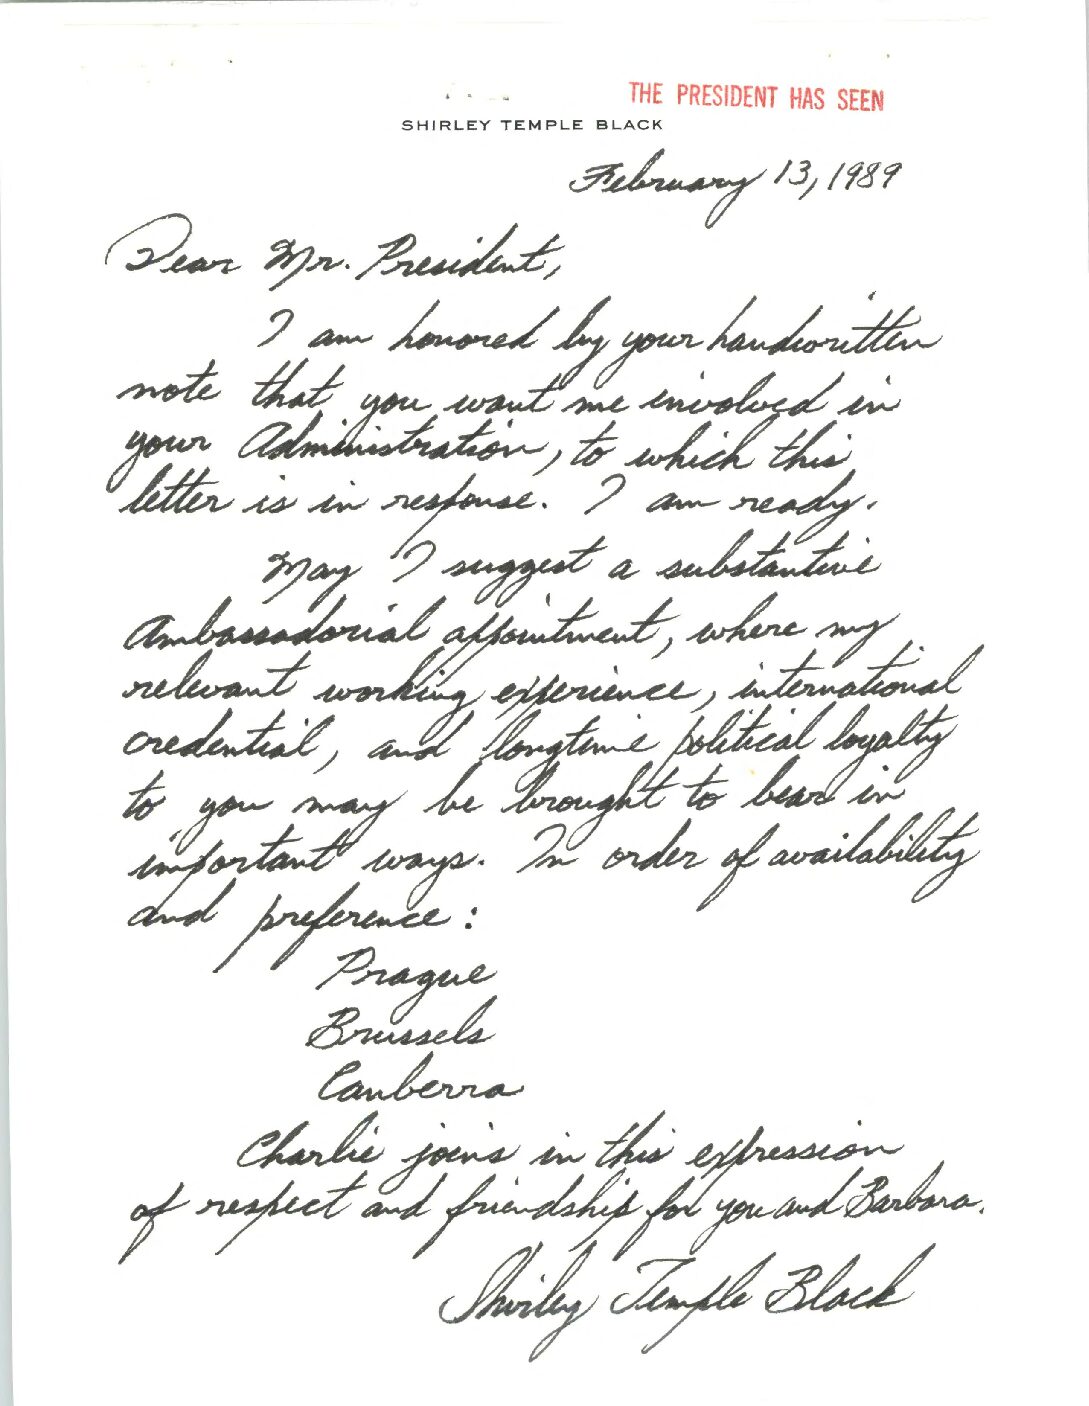 THE PRESIDENT HAS SEEN
SHIRLEY TEMPLE BLACK
February 13, 1989
Dear Mr. President,
I am honored by your handwritten
note that you want me involved in
your Administration, to which this
letter is in response. I am ready.
May I suggest a substantive
Ambassadorial appointment, where my
relevant working experience, international
credential, and longtime political loyalty
to you may be brought to bear in
important ways. In order of availability
and preference:
Prague
Brussels
Canberra
Charlie joins in this expression
of respect and friendship for you and Barbara.
Shirley Temple Black